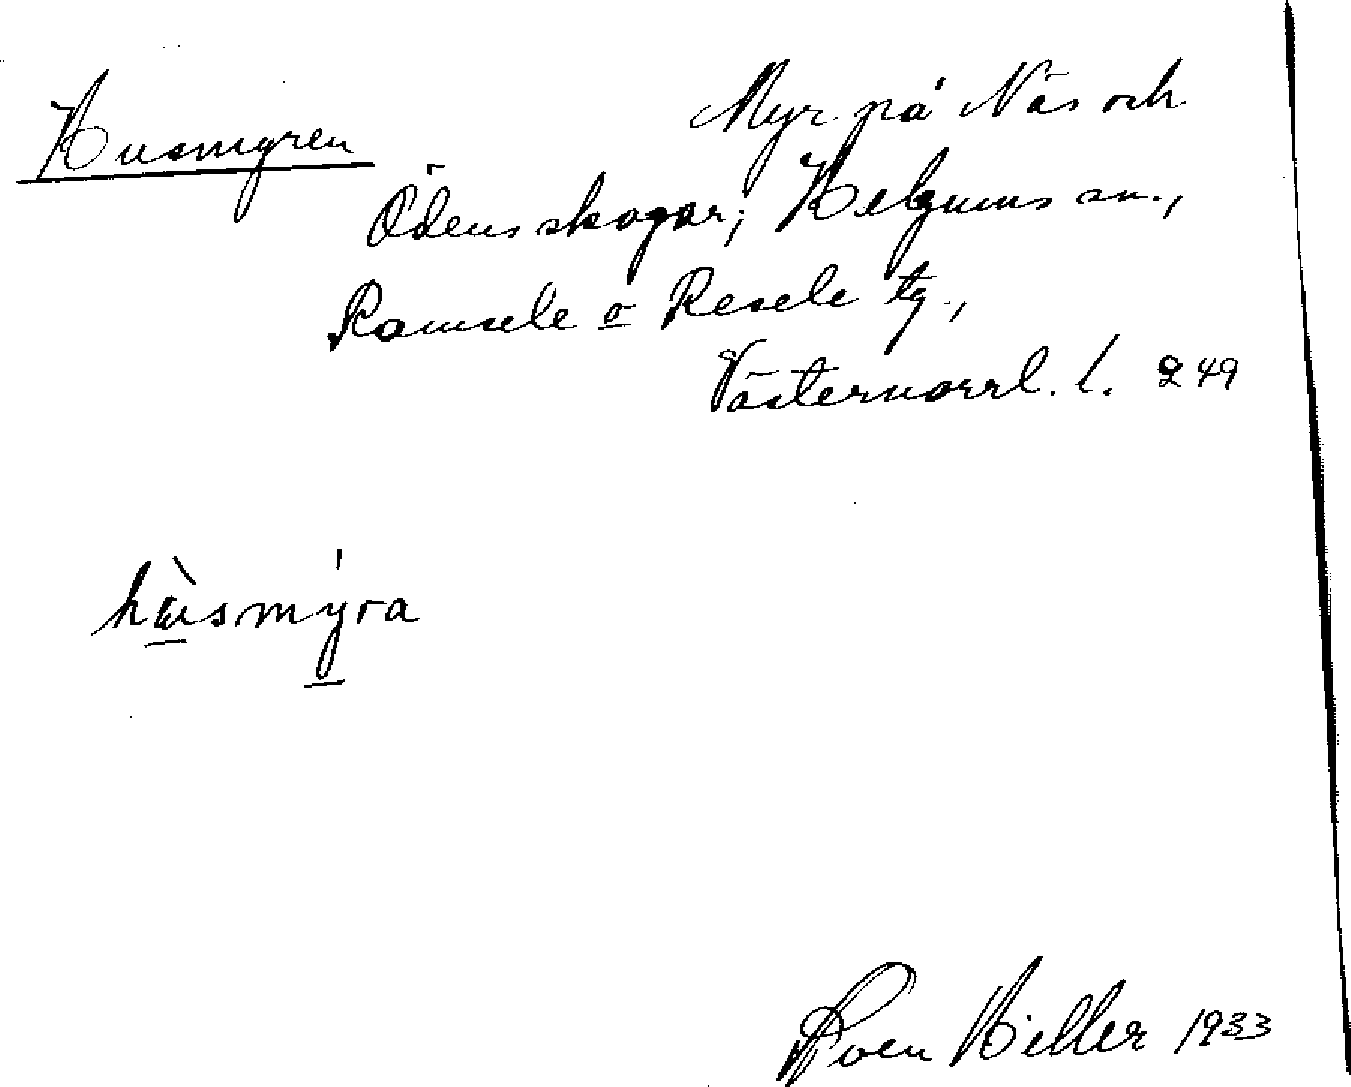 Husmyren
Myr på Näs och
Ödens skogar; Helgums sn.,
Ramsele o Resele tg.,
Västernorrl. l. 249
hùsmýra
Sven Hiller 1933